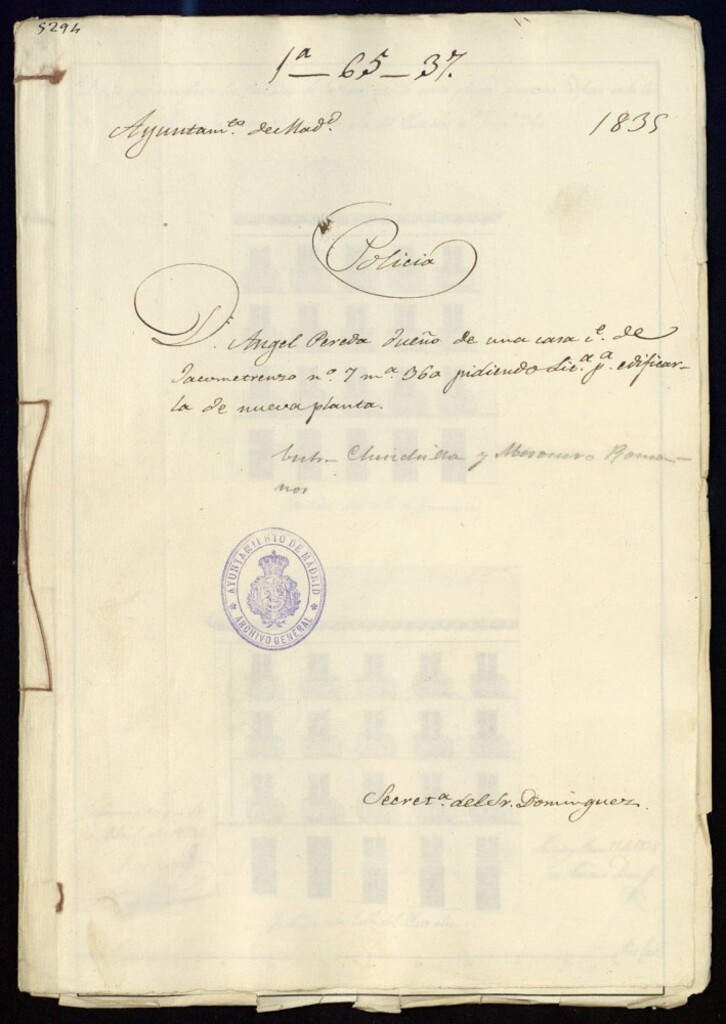 5294
1ª — 65 — 37.
Ayuntamto. de Madd. 1835
Policia
D. Angel Pereda dueño de una casa ce. de
Jacometrenzo nº. 7 mª. 360 pidiendo Lic.ª pª. edificar-
la de nueva planta.
y Mesonero Roma-
nos
AYUNTAMIENTO DE MADRID
ARCHIVO GENERAL
Secretª. del Sr. Dominguez.